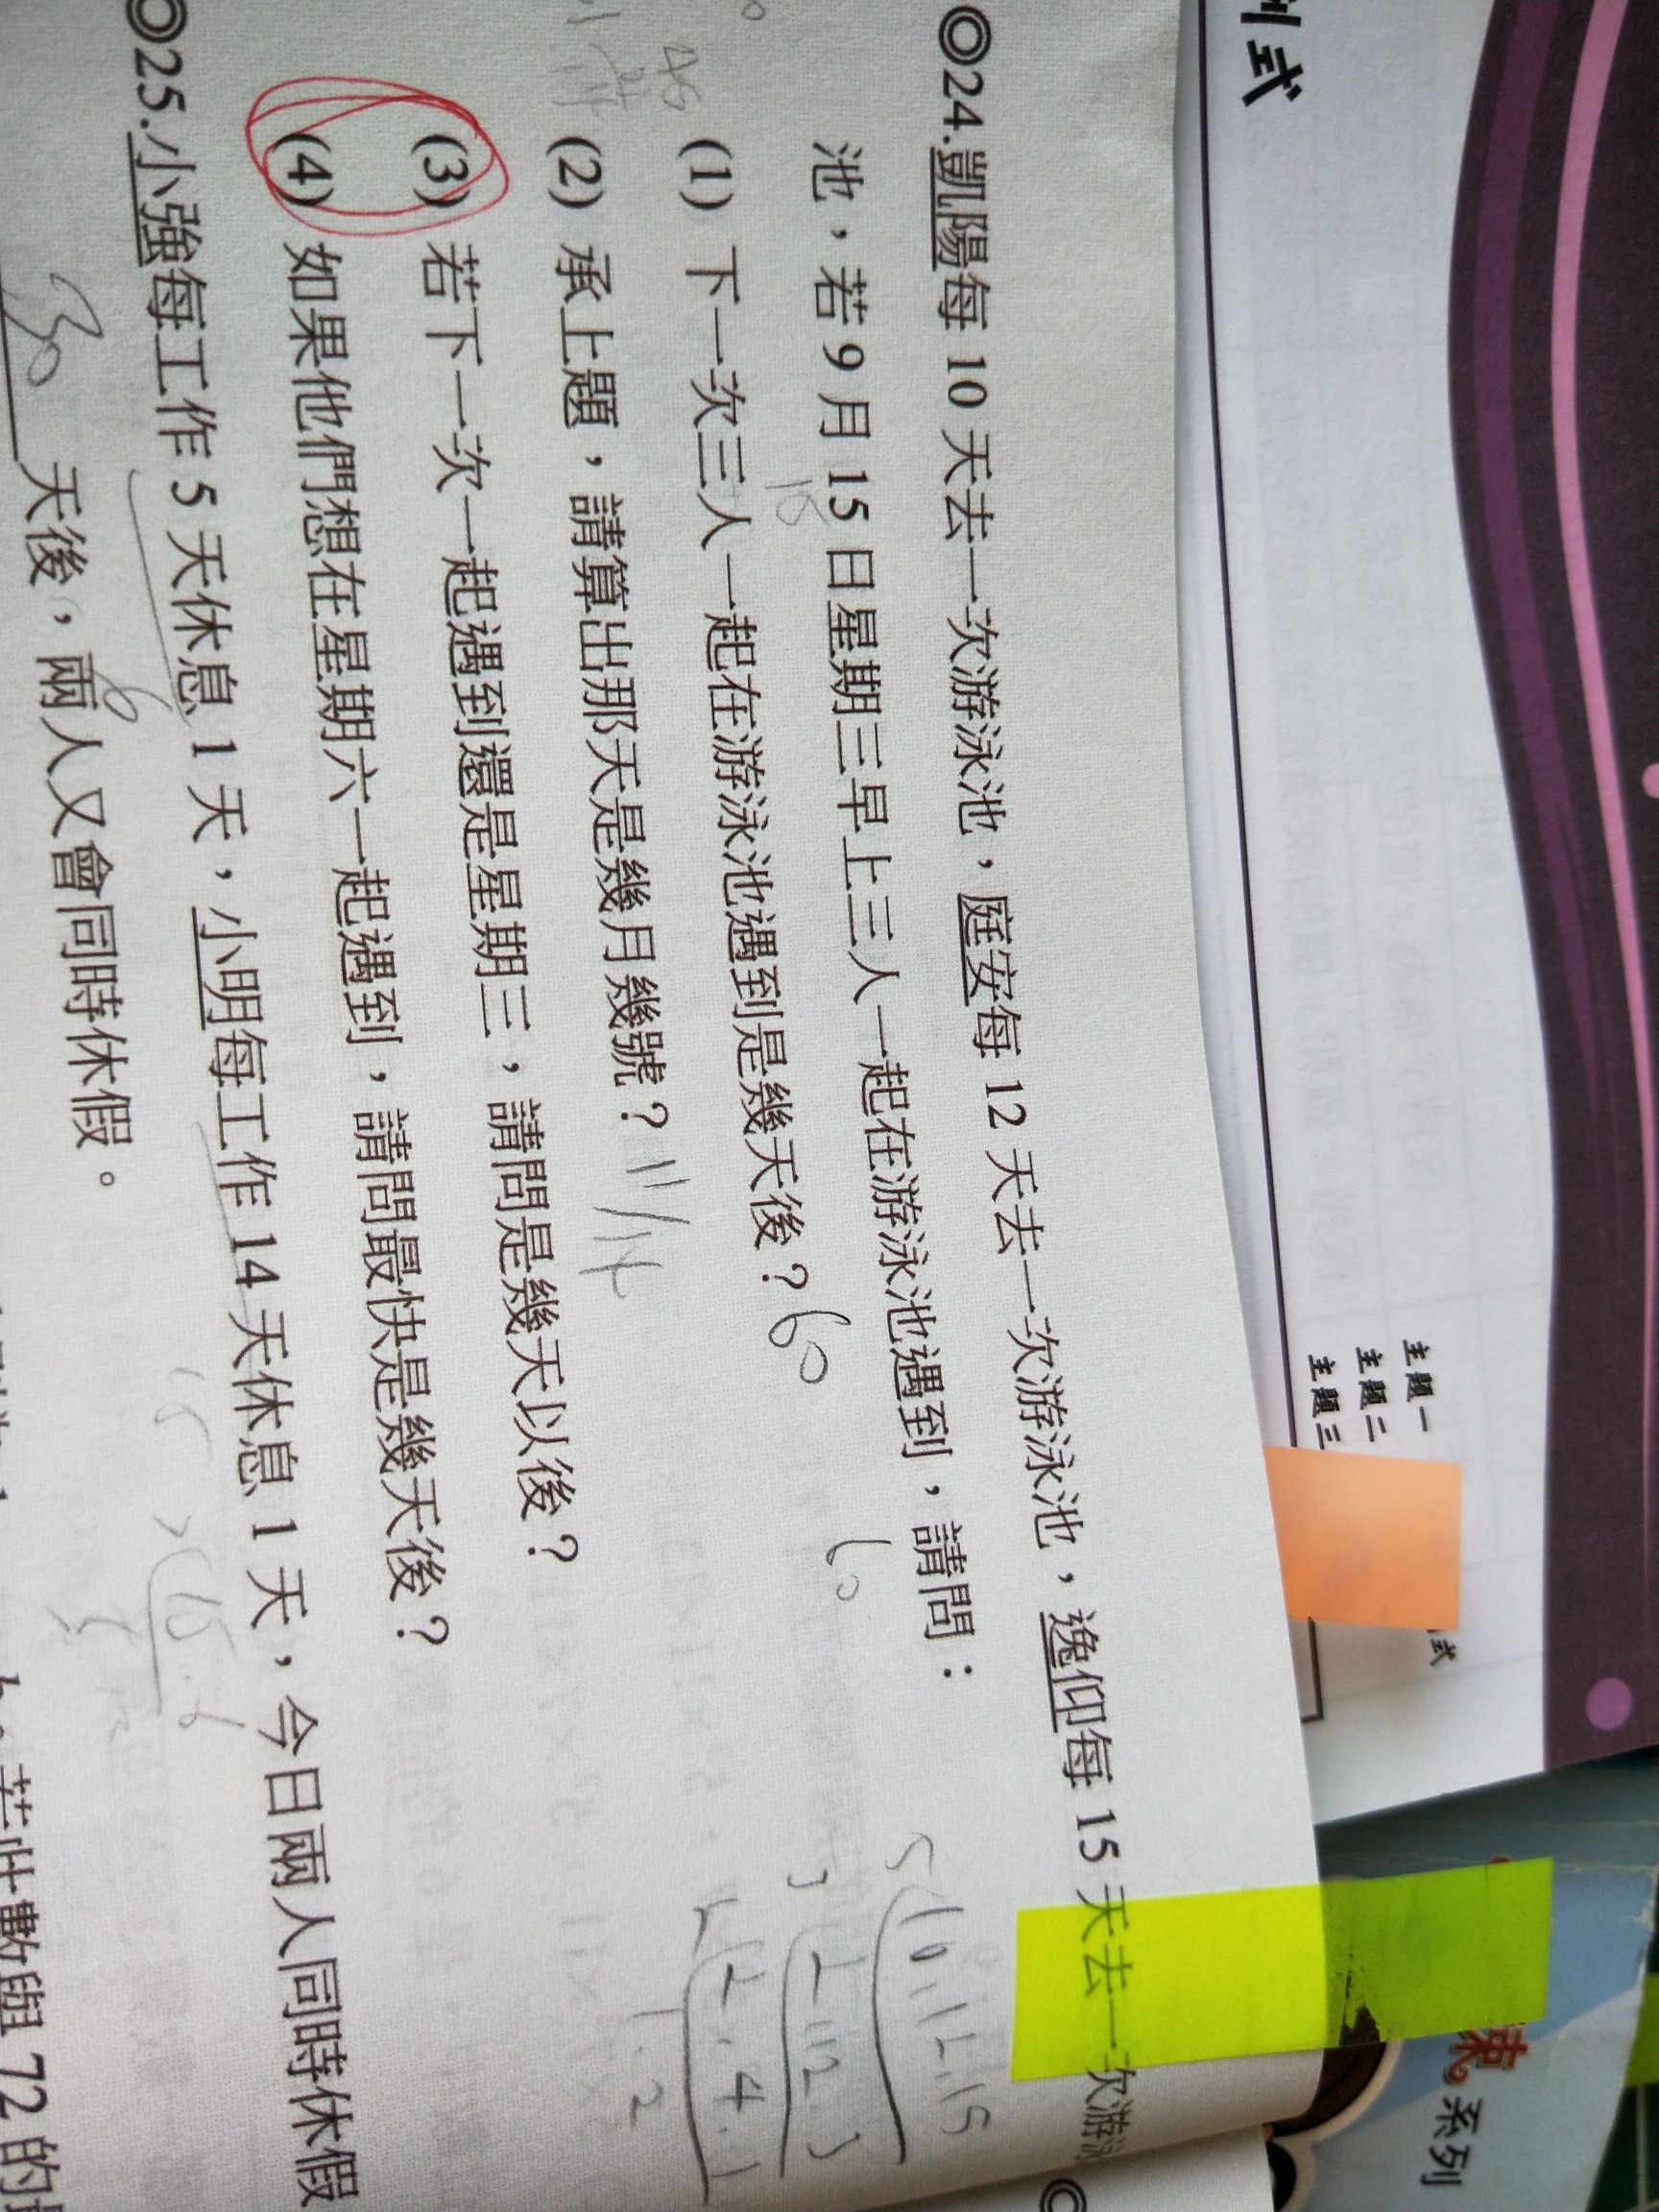 列式
主題一
主題二
主題三
式
系列
◎24.凱陽每 10 天去一次游泳池，庭安每 12 天去一次游泳池，逸仰每 15 天去一次游泳
池，若 9 月 15 日星期三早上三人一起在游泳池遇到，請問：
(1) 下一次三人一起在游泳池遇到是幾天後？60
60
(2) 承上題，請算出那天是幾月幾號？11/14
(3) 若下一次一起遇到還是星期三，請問是幾天以後？
(4) 如果他們想在星期六一起遇到，請問最快是幾天後？
5 10.12.15
3 2 12.3
2 2.4.1
1.2
45
15
◎25.小強每工作 5 天休息 1 天，小明每工作 14 天休息 1 天，今日兩人同時休假
30天後，兩人又會同時休假。
6
15
若此數與 72 的